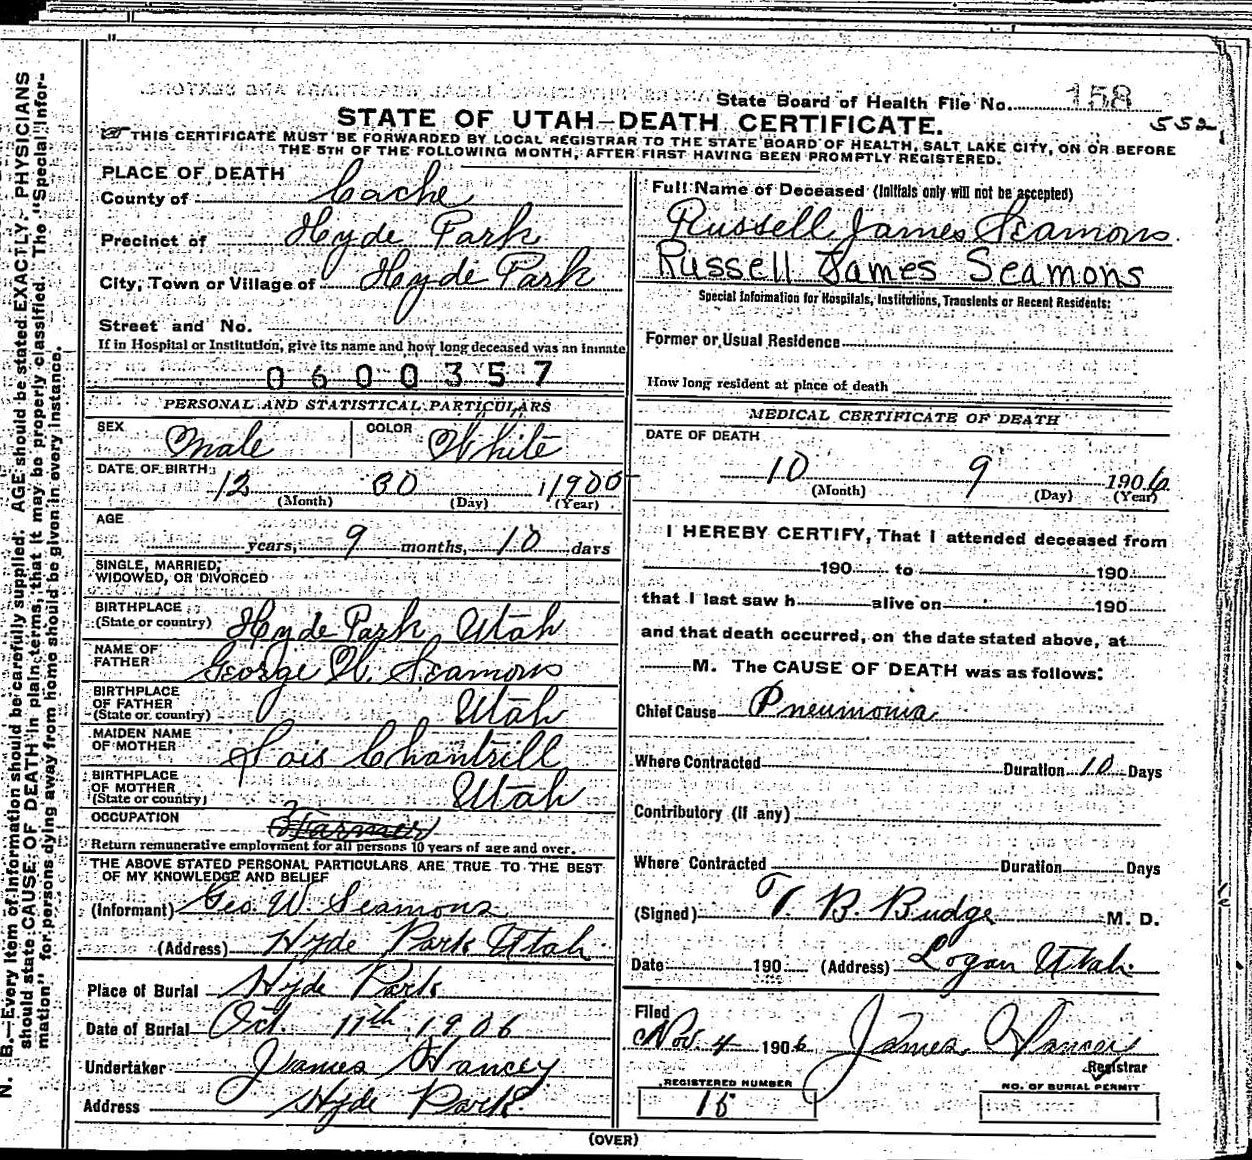 State Board of Health File No. 158
552
STATE OF UTAH—DEATH CERTIFICATE.
THIS CERTIFICATE MUST BE FORWARDED BY LOCAL REGISTRAR TO THE STATE BOARD OF HEALTH, SALT LAKE CITY, ON OR BEFORE
THE 5TH OF THE FOLLOWING MONTH, AFTER FIRST HAVING BEEN PROMPTLY REGISTERED.
PLACE OF DEATH
County of Cache
Precinct of Hyde Park
City, Town or Village of Hyde Park
Street and No.
If in Hospital or Institution, give its name and how long deceased was an inmate
0600357
PERSONAL AND STATISTICAL PARTICULARS
SEX Male COLOR White
DATE OF BIRTH: 12 30 1905
(Month) (Day) (Year)
AGE
years, 9 months, 10 days
SINGLE, MARRIED,
WIDOWED, OR DIVORCED
BIRTHPLACE
(State or country) Hyde Park, Utah
NAME OF
FATHER George W. Seamons
BIRTHPLACE
OF FATHER
(State or country) Utah
MAIDEN NAME
OF MOTHER Lois Chantrill
BIRTHPLACE
OF MOTHER
(State or country) Utah
OCCUPATION Farmer
Return remunerative employment for all persons 10 years of age and over.
THE ABOVE STATED PERSONAL PARTICULARS ARE TRUE TO THE BEST
OF MY KNOWLEDGE AND BELIEF
(Informant) Geo W. Seamons
(Address) Hyde Park Utah
Place of Burial Hyde Park
Date of Burial Oct. 11th 1906
Undertaker James Hancey
Address Hyde Park
Full Name of Deceased (Initials only will not be accepted)
Russell James Seamons.
Russell James Seamons
Special Information for Hospitals, Institutions, Transients or Recent Residents:
Former or Usual Residence
How long resident at place of death
MEDICAL CERTIFICATE OF DEATH
DATE OF DEATH
10 9 1906
(Month) (Day) (Year)
I HEREBY CERTIFY, That I attended deceased from
190 to 190
that I last saw h alive on 190
and that death occurred, on the date stated above, at
M. The CAUSE OF DEATH was as follows:
Chief Cause Pneumonia
Where Contracted Duration 10 Days
Contributory (if any)
Where Contracted Duration Days
(Signed) T. B. Budge M. D.
Date 190 (Address) Logan Utah.
Filed
Nov. 4 1906 James Hancey
Registrar
REGISTERED NUMBER
15
NO. OF BURIAL PERMIT
(OVER)
N. B.—Every item of information should be carefully supplied. AGE should be stated EXACTLY. PHYSICIANS
should state CAUSE OF DEATH in plain terms, that it may be properly classified. The "Special Infor-
mation" for persons dying away from home should be given in every instance.